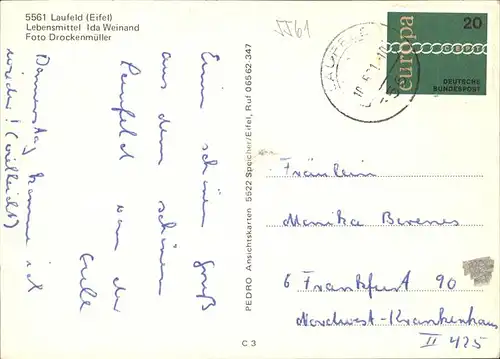 5561 Laufeld (Eifel)
Lebensmittel Ida Weinand
Foto Drockenmüller
5561
europa
20
CEPT
DEUTSCHE
BUNDESPOST
LAUFELD
Einen schönen Gruß
aus dem schönen
Laufeld von der
Donnerstag komme ich
wieder! (vielleicht)
PEDRO Ansichtskarten 5522 Speicher/Eifel, Ruf 06562-347
Fräulein
Monika Berenes
6 Frankfurt 90
Nordwest-Krankenhaus
II 425
C 3